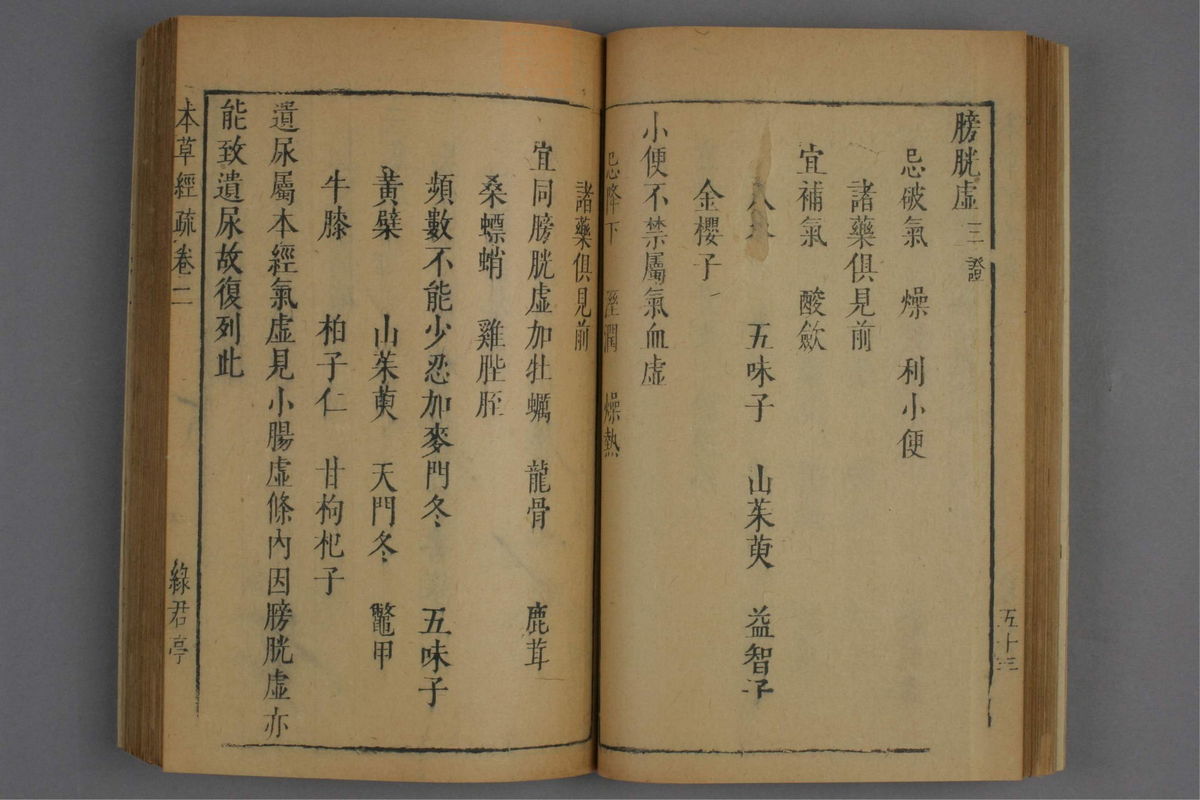 膀胱虛三證
忌破氣 燥 利小便
諸藥俱見前
宜補氣 酸歛
五味子 山茱萸 益智子
金櫻子
小便不禁屬氣血虛
忌降下 溼潤 燥熱
諸藥俱見前
宜同膀胱虛加牡蠣 龍骨 鹿茸
桑螵蛸 雞胵胵
頻數不能少忍加麥門冬 五味子
黃檗 山茱萸 天門冬 鼈甲
牛膝 柏子仁 甘枸杞子
遺尿屬本經氣虛見小腸虛條內因膀胱虛亦
能致遺尿故復列此
五十三
本草經疏卷二
綠君亭